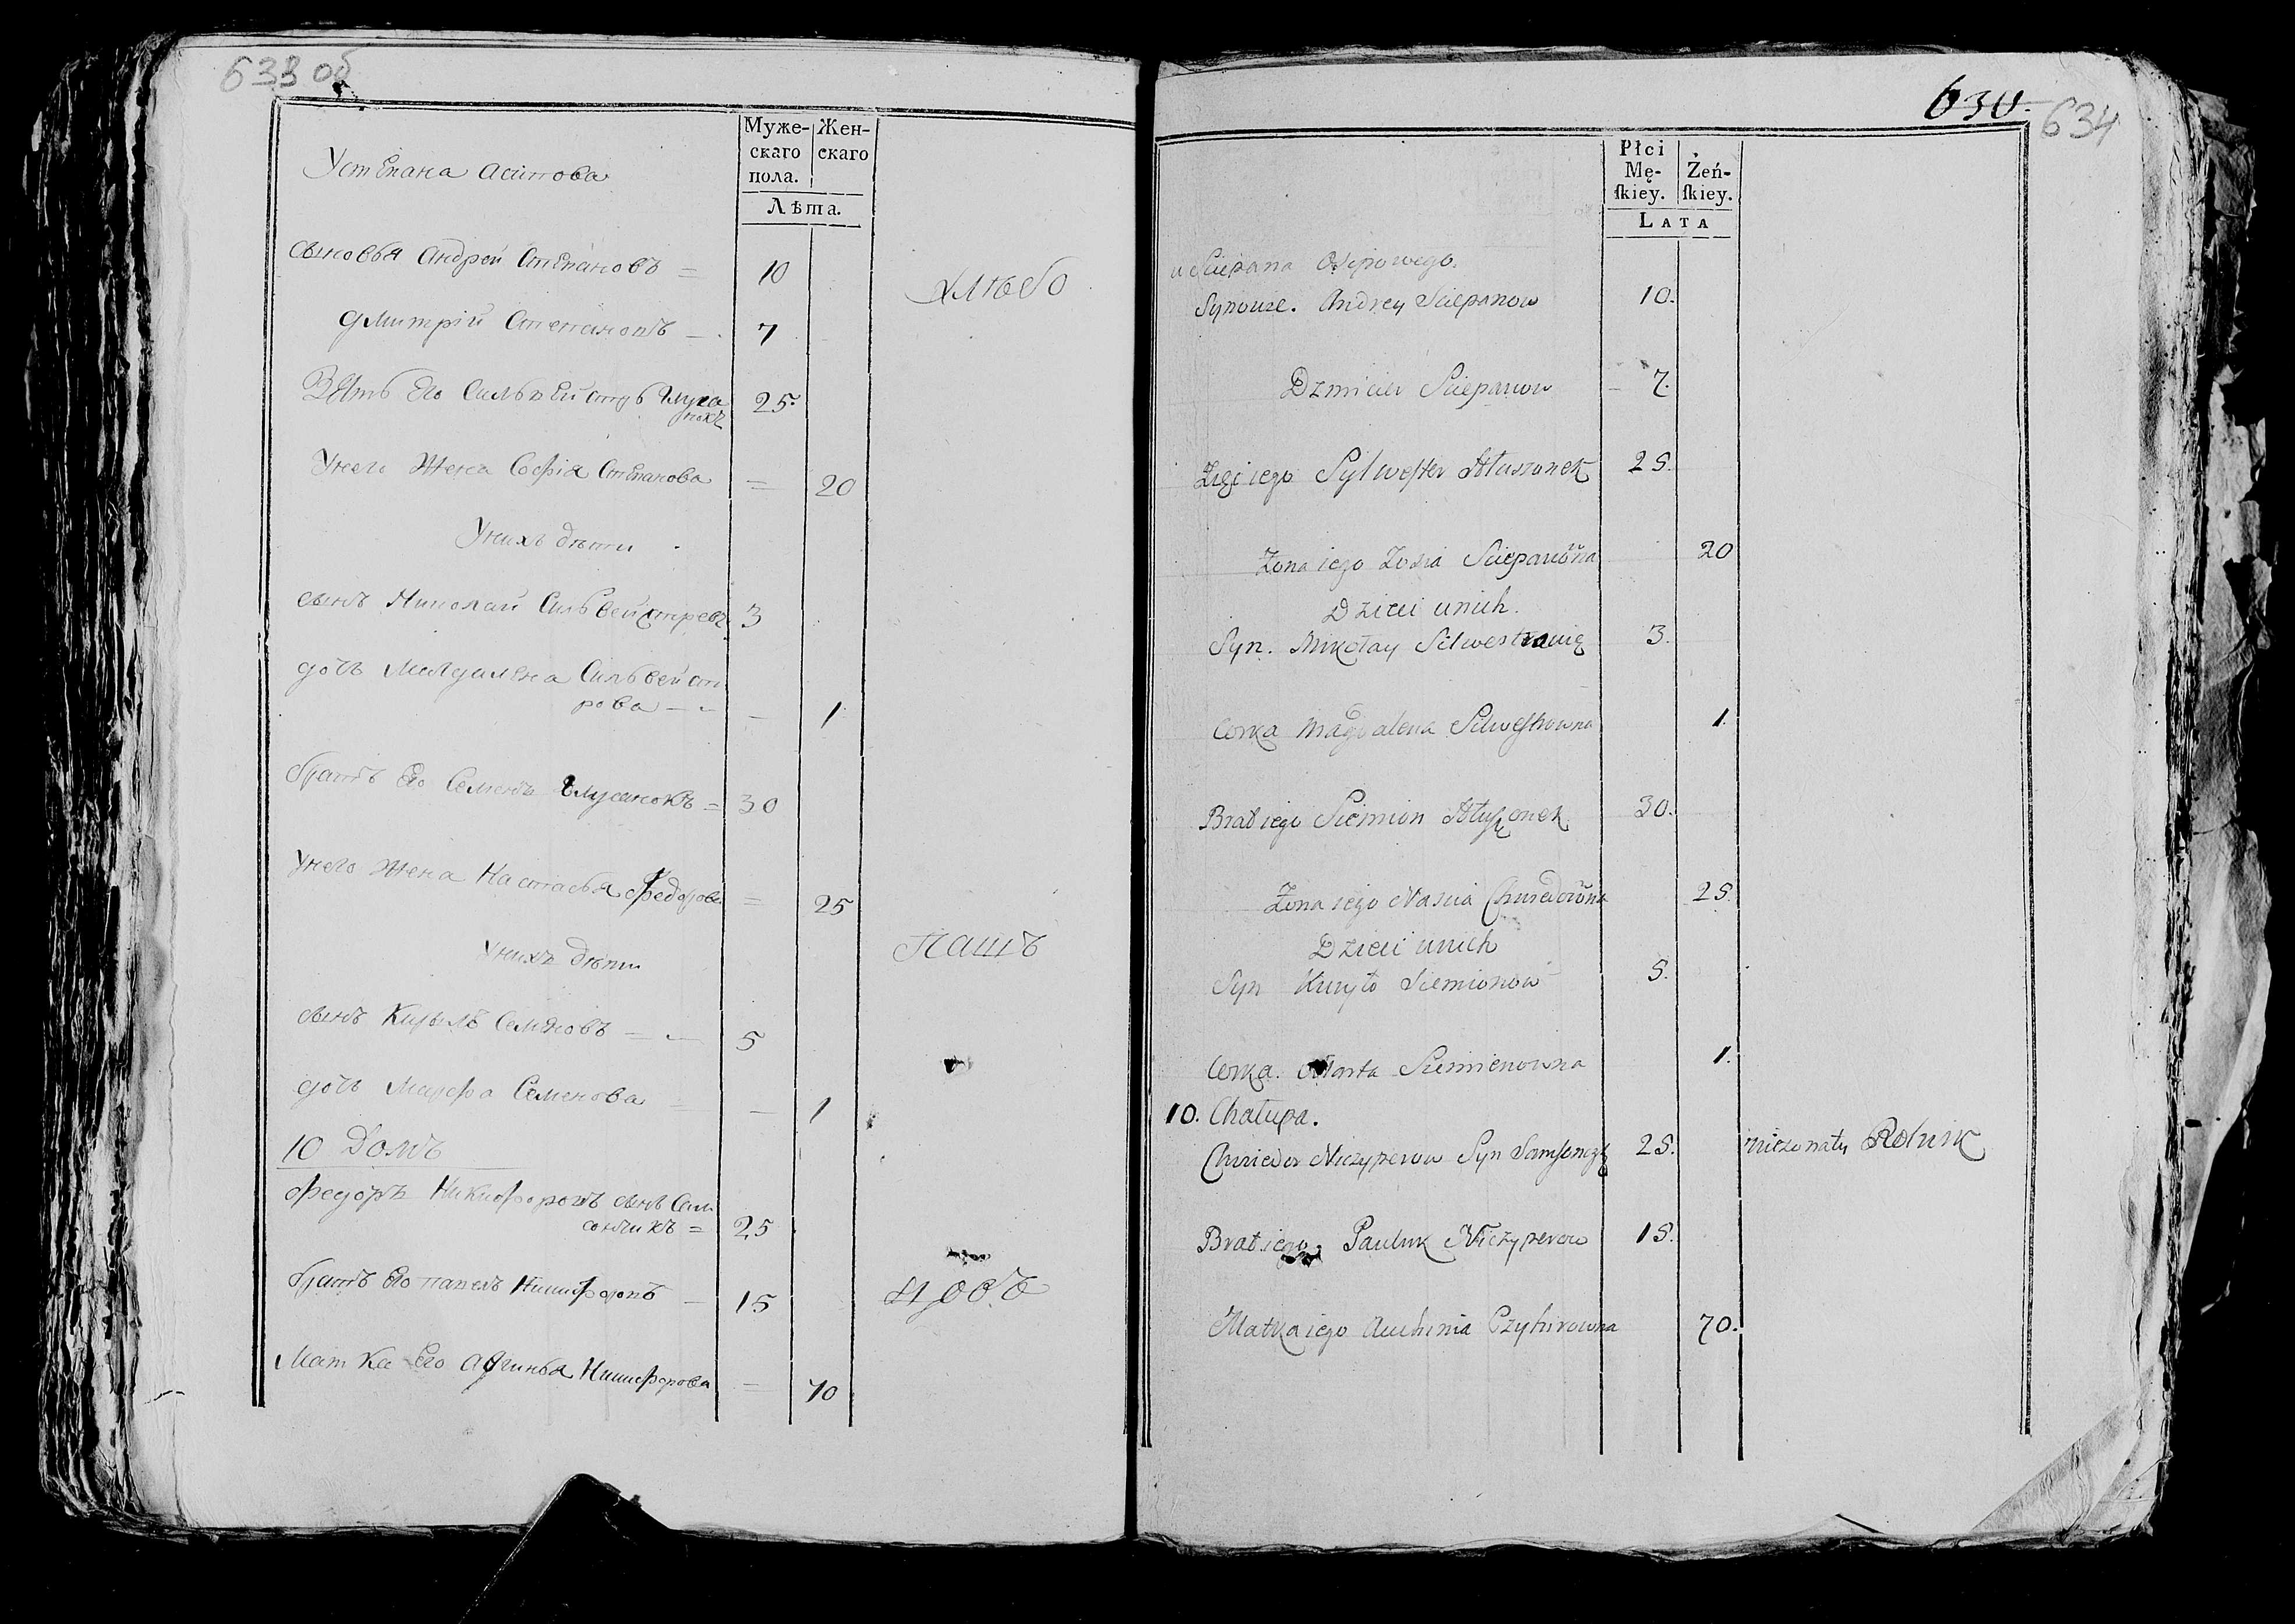 633 об
Муже- Жен-
скаго скаго
пола.
Лѣта.
У степана асипова
сыновья Андрей Степановъ = 10
хлѣбо
дмитрій Степановъ — 7
Зять Его Сильвейстръ Глуша 25
нокъ
У него Жена Софія Степанова = 20
У нихъ дѣти
сынъ Николай Сильвейстровъ 3
дочь Магдалена Сильвейст
рова — — 1
братъ Его Семенъ Глушанокъ = 30
У него Жена Настасья Федорова = 25
пашъ
У нихъ дѣти
сынъ Кирылъ Семеновъ = — 5
дочь Марфа Семенова = — 1
10 Домъ
Федоръ Никифоровъ сынъ Сам
сончикъ = 25
братъ Его павелъ Никифоровъ — 15
Матка Его Авгинья Никифорова = 70
630. 634
Płci Żeń-
Mę- ſkiey.
ſkiey.
LATA
u Sciepana Osipowego.
Synowie. Andrey Sciepanow 10.
Dzmicier Sciepanow — 7.
Zięć iego Sylwester Hłuszonek 25.
Żona iego Zosia Sciepanowna 20
Dzieci unich.
Syn. Mikołay Silwestrowicz 3.
Corka Magdalena Silwestrowna 1.
Brat iego Siemion Hłuszonek 30.
Żona iego Nascia Chwiedorowna 25.
Dzieci unich
Syn Kuryło Siemionow 5.
Corka. Marta Siemienowna 1.
10. Chałupa.
Chwiedor Niczyperow Syn Samsonczyk 25. niezonaty Rolnik
Brat iego Pauluk Niczyperow 15.
Matka iego Auhinia 70.